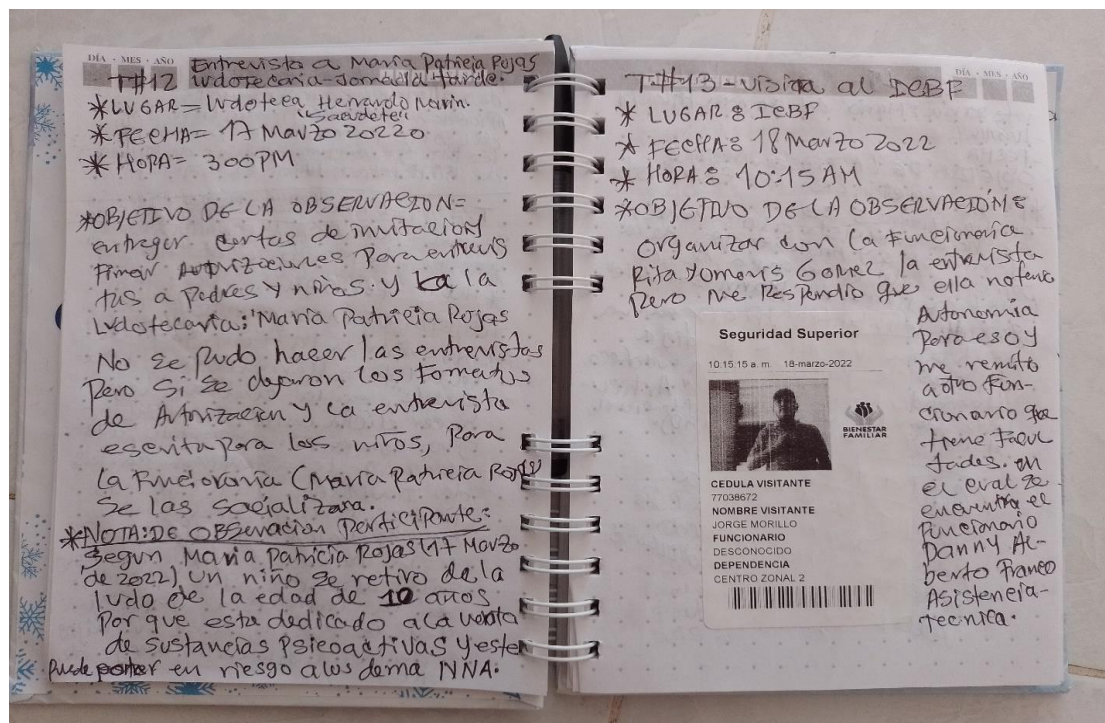 DÍA · MES · AÑO
Entrevista a María Patricia Rojas
T#12 ludotecaria-Jornada tarde.
*LUGAR= ludoteca Hernando Marín.
*FECHA= 17 Marzo 20220
*HORA= 300PM
*OBJETIVO DE LA OBSERVACIÓN=
entregar cartas de invitación y
Firmar Autorizaciones Para entrevis
tas a Padres y niños. y a la
Ludotecaria: María Patricia Rojas
No se pudo hacer las entrevistas
Pero si se dejaron los Formatos
de Autorización y la entrevista
escrita para los niños, Para
La Funcionaria (María Patricia Rojas
Se las Socializara.
*NOTA: DE OBSERVACIÓN Participante:
Segun María Patricia Rojas (17 Marzo
de 2022) un niño se retiro de la
ludo de la edad de 10 años
Por que esta dedicado a la venta
de sustancias Psicoactivas y este
Puede poner en riesgo a los dema NNA.
DÍA · MES · AÑO
T#13-visita al ICBF
* LUGAR: ICBF
* FECHA: 18 Marzo 2022
* HORA: 10:15 AM
*OBJETIVO DE LA OBSERVACIÓN:
Organizar con la Funcionaria
Rita Gomez la entrevista
Pero me Respondio que ella no tenia
Autonomia
Para eso y
me remito
a otro Fun-
cionario que
tiene Facul
tades. en
el cual se
encuentra el
Funcionario
Danny Al-
berto Franco
Asistencia-
Tecnica.
Seguridad Superior
10:15:15 a. m. 18-marzo-2022
BIENESTAR
FAMILIAR
CEDULA VISITANTE
77038672
NOMBRE VISITANTE
JORGE MORILLO
FUNCIONARIO
DESCONOCIDO
DEPENDENCIA
CENTRO ZONAL 2